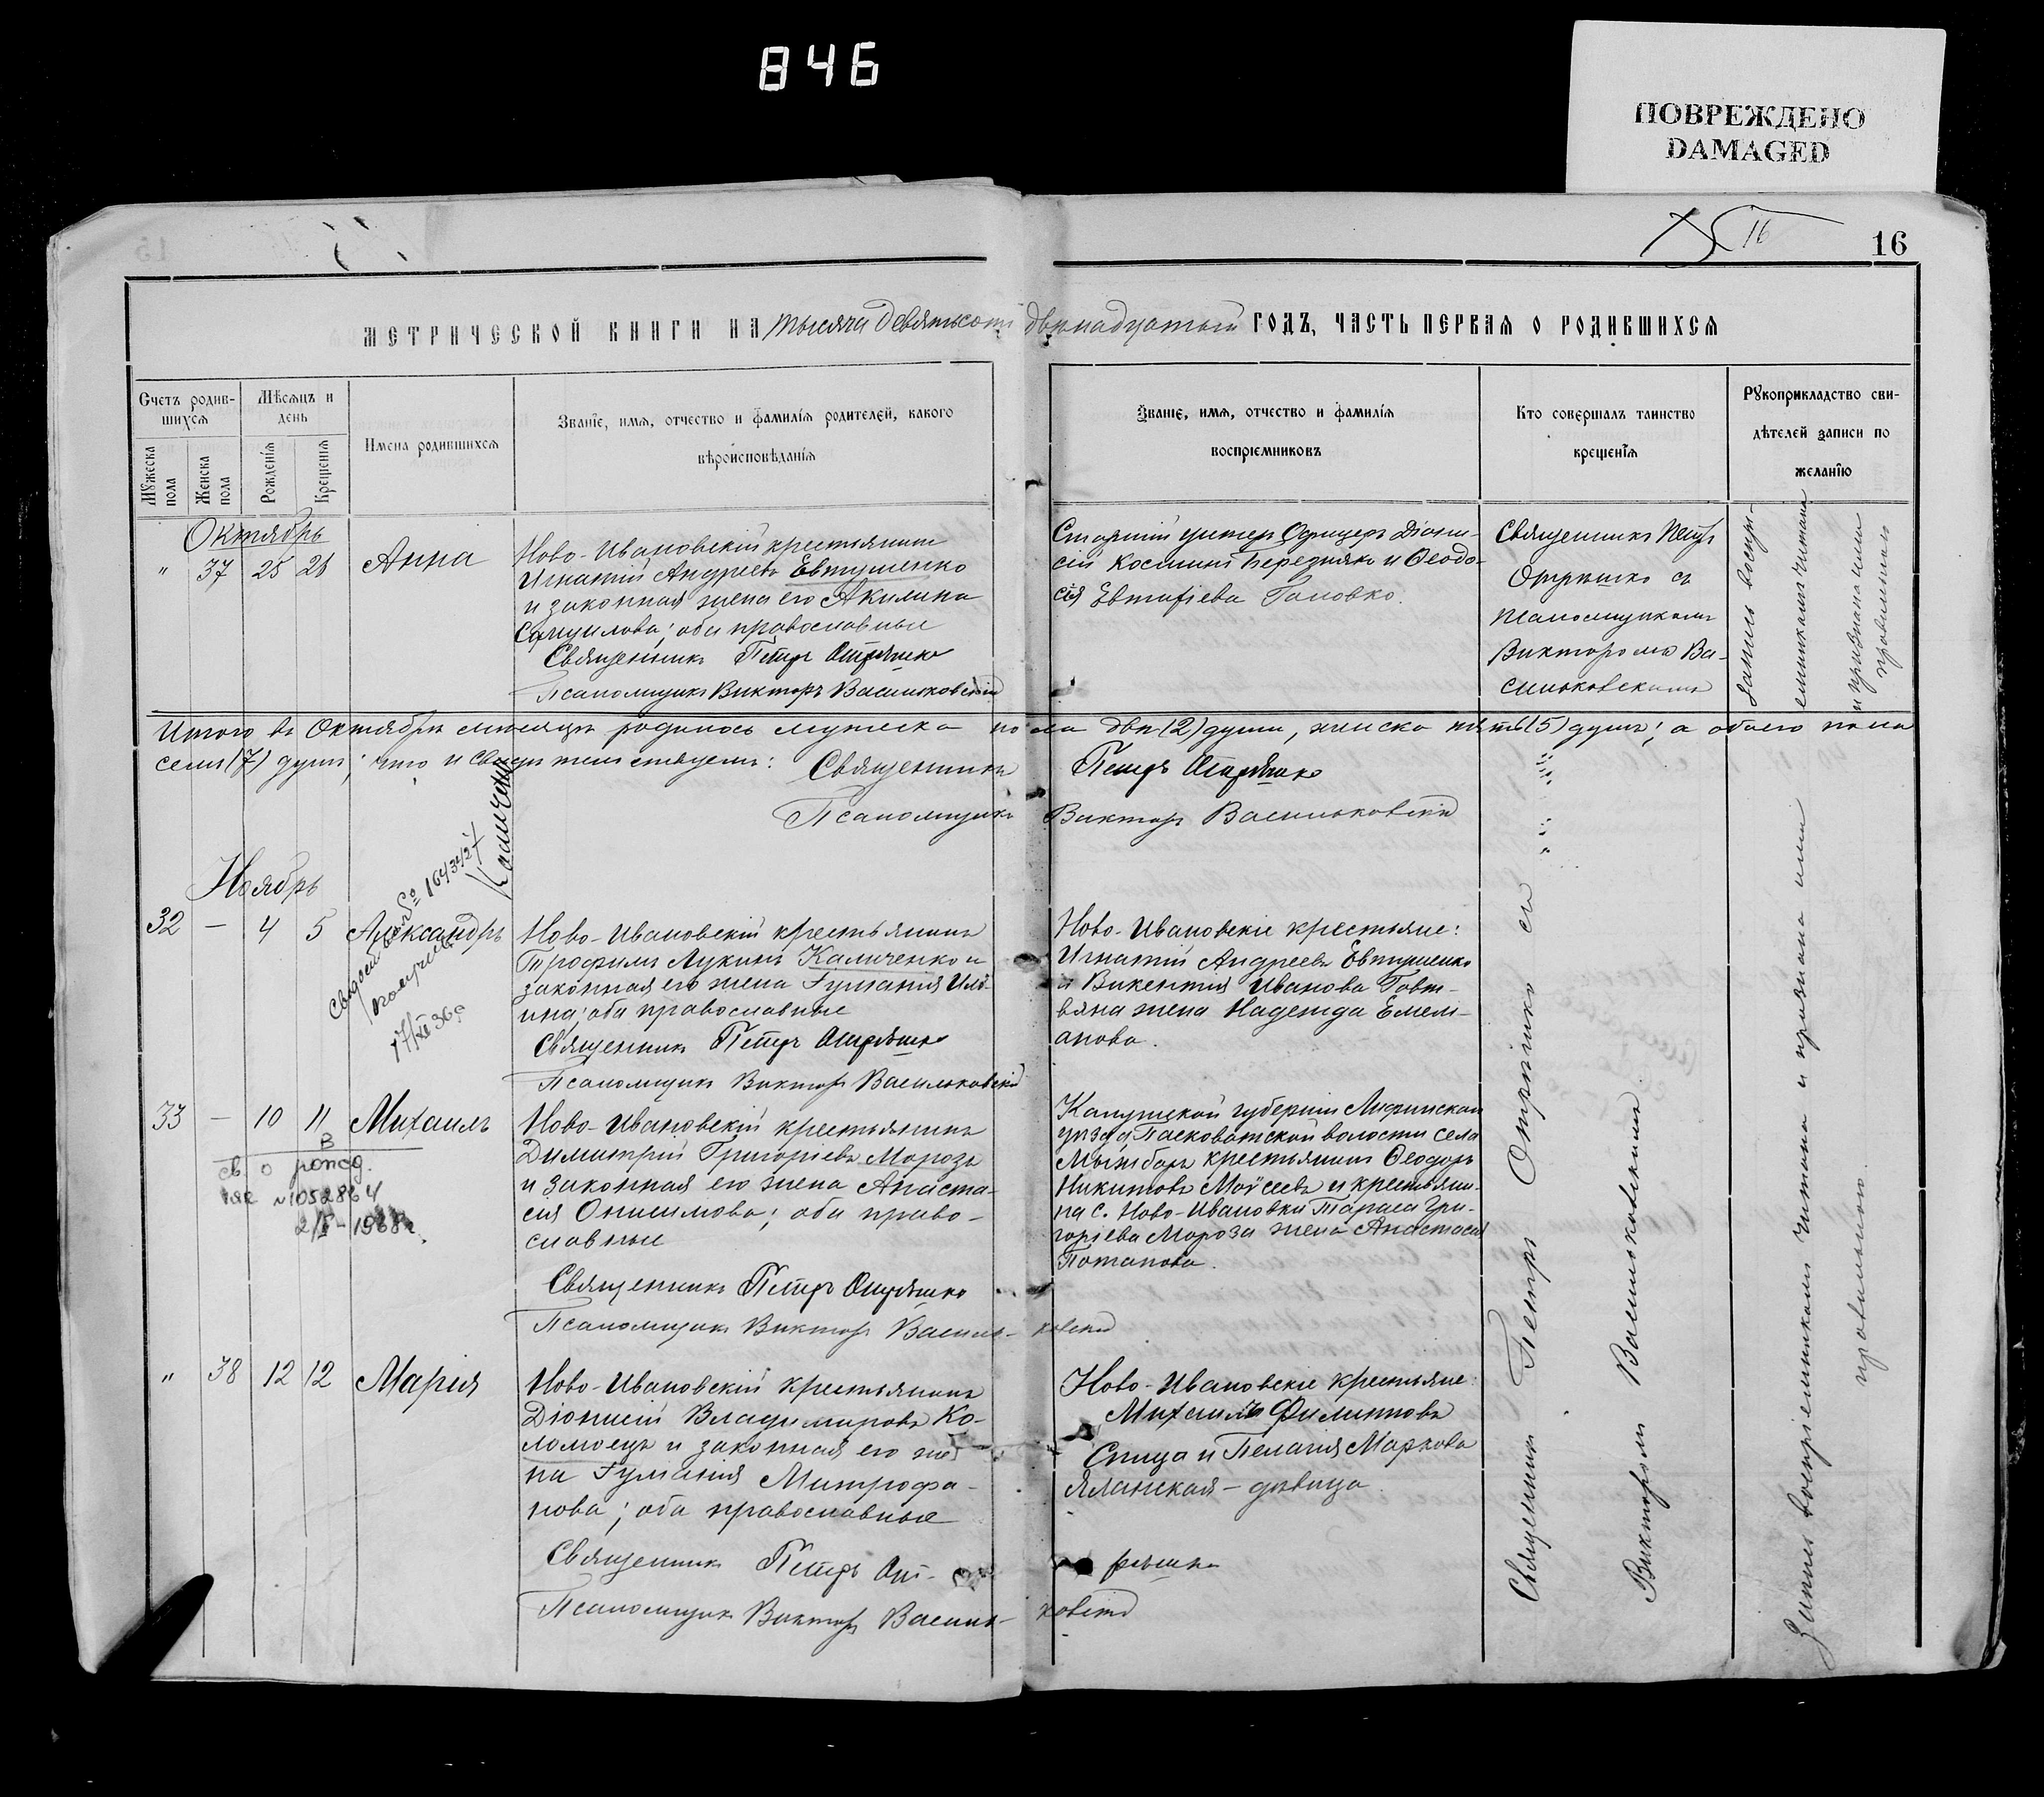 846
ПОВРЕЖДЕНО
DAMAGED
16
16
МЕТРИЧЕСКОЙ КНИГИ НА тысяча девятьсотъ двѣнадцатый ГОДЪ, ЧАСТЬ ПЕРВАЯ О РОДИВШИХСЯ
Счетъ родив-
шихся
Мужеска
пола
Женска
пола
Мѣсяцъ и
день
Рожденія
Крещенія
Имена родившихся
Званіе, имя, отчество и фамилія родителей, какого
вѣроисповѣданія
Званіе, имя, отчество и фамилія
воспріемниковъ
Кто совершалъ таинство
крещенія
Рукоприкладство сви-
дѣтелей записи по
желанію
Октябрь
" 37 25 26 Анна
Ново-Ивановскій крестьянинъ
Игнатій Андреевъ Евтушенко
и законная жена его Акилина
Самуилова; оба православные
Священникъ Петръ Отрѣшко
Псаломщикъ Викторъ Васильковскій
Старшій унтеръ Офицеръ Діони-
сій Косминъ Березнякъ и Ѳеодо-
сія Евтифіева Головко.
Священникъ Петръ
Отрѣшко съ
псаломщикомъ
Викторомъ Ва-
сильковскимъ
Запись воспрі-
емникамъ читана
и признана ими
правильной
Итого въ Октябрѣ мѣсяцѣ родилось мужеска пола двѣ (2) души, женска пять (5) душъ; а обоего пола
семь (7) душъ; что и свидѣтельствуемъ: Священникъ Петръ Отрѣшко
Псаломщикъ Викторъ Васильковскій
Ноябрь
32 — 4 5 Александръ
Каличенко
получено
Ново-Ивановскій крестьянинъ
Трофимъ Лукинъ Каличенко и
законная его жена Іуліанія Иль-
ина; оба православные
Священникъ Петръ Отрѣшко
Псаломщикъ Викторъ Васильковскій
Ново-Ивановскіе крестьяне:
Игнатій Андреевъ Евтушенко
и Викентія Иванова Говт-
вяна жена Надежда Емель-
анова.
33 — 10 11 Михаилъ
св. о рожд.
№1052864
2/V-1968г.
Ново-Ивановскій крестьянинъ
Димитрій Григоріевъ Морозъ
и законная его жена Анаста-
сія Онисимова; оба право-
славные
Священникъ Петръ Отрѣшко
Псаломщикъ Викторъ Василь-ковскій
Калужской губерніи Лифинской
уѣзда Пасковатской волости села
крестьянинъ Ѳеодоръ
Никитовъ Моисеевъ и крестьяни-
на с. Ново-Ивановки Тараса Гри-
горіева Мороза жена Анастасія
Потапова.
" 38 12 12 Марія
Ново-Ивановскій крестьянинъ
Діонисій Владимировъ Ко-
ломоецъ и законная его же-
на Іуліанія Митрофа-
нова; оба православные
Священникъ Петръ От-рѣшко
Псаломщикъ Викторъ Василь-ковскій
Ново-Ивановскіе крестьяне:
Михаилъ Филипповъ
Спица и Пелагія Маркова
Яланская - дѣвица.
Священникъ Петръ Отрѣшко съ
Викторомъ Васильковскимъ
Запись воспріемникамъ читана и признана ими
правильною.